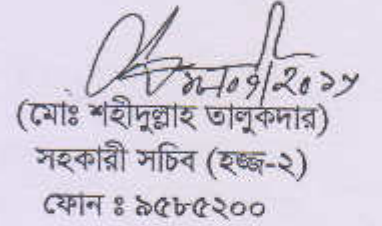 (মোঃ শহীদুল্লাহ তালুকদার)
সহকারী সচিব (হজ্জ-২)
ফোন ঃ ৯৫৮৫২০০